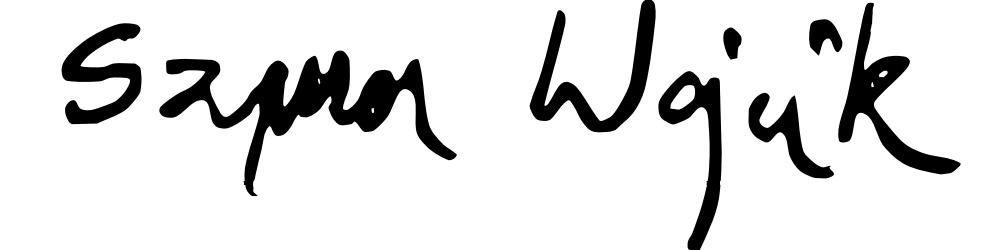 Szymon Wojcik